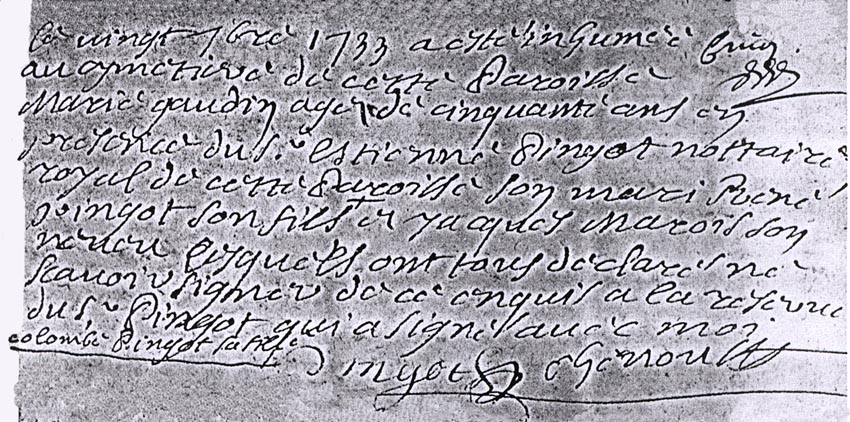 le vingt 7bre 1733 a esté inhumeé
au cymetiere de cette Paroisse
Marie gaudin ageé de cinquante ans en
presence du s.r Estienne Pingot nottaire
royal de cette Paroisse son mari René
pingot son fils et Jacques Marois son
neveu lesquels ont tous declares ne
scavoir signer de ce enquis a la reserve
du s.r Pingot qui a signé avec moi
colombe Pingot sa
Pingot